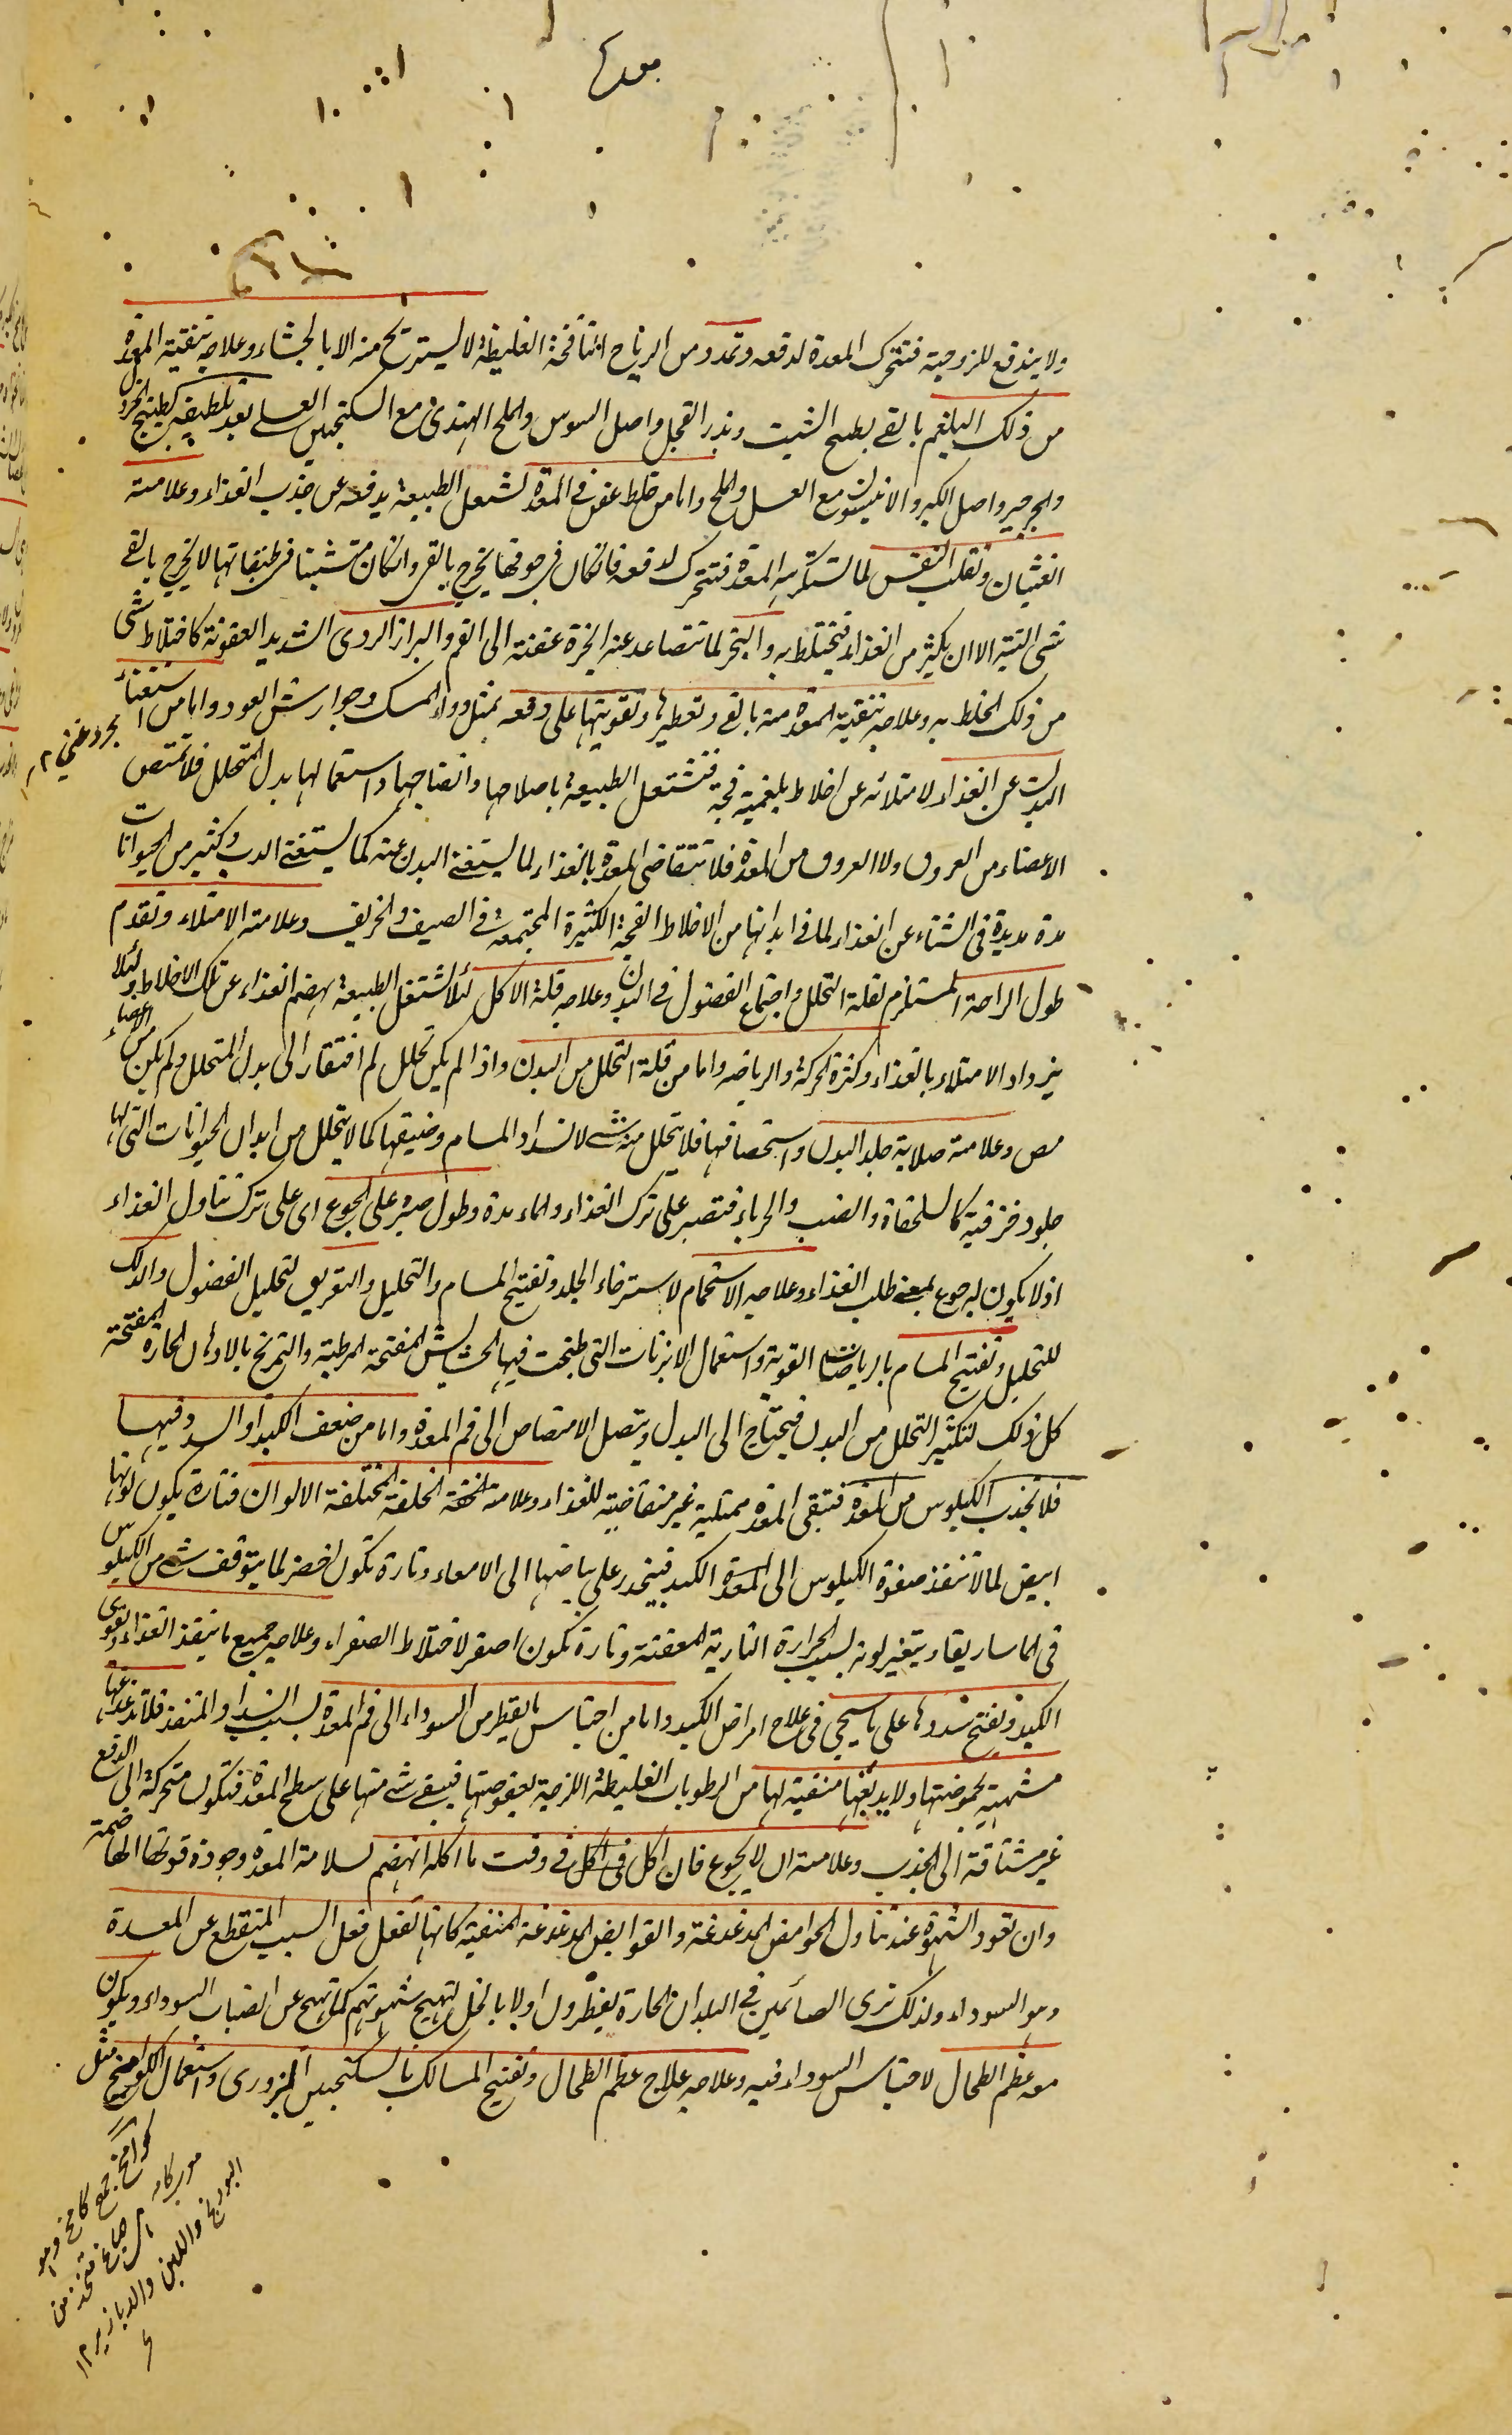 ولا يندفع للزوجية فتتحرك المعدة لدفعه وتمدد من الرياح النافخة الغليظة لا يستريح منه الا بالجشاء وعلاجه تنقية المعدة
من ذلك البلغم بالقى بطبيخ الشبت وبذر الفجل واصل السوس والملح الهندى مع السكنجبين العسلى بعد تلطيفه كطبيخ الخردل
والجرجير واصل الكبر والانيسون مع العسل والملح واما من خلط عفن فى المعدة تشتغل الطبيعة بدفعه عن جذب الغذاء وعلامته
الغثيان وتقلب النفس لما تستكرهه المعدة فتتحرك لدفعه فان كان فى جوفها يخرج بالقى وان كان متشبثا فى طبقاتها لا يخرج بالقى
شى البتة الا ان يكثر من الغذاء فيختلط به والبخر لما تتصاعد عنه ابخرة عفنة الى الفم والبراز الردى الشديد العفونة لاختلاط شى
من ذلك الخلط به وعلاجه تنقية المعدة منه بالقى وتعطيرها وتقويتها على دفعه بمثل دواء المسك وجوارش العود واما من استغناء
البدن عن الغذاء لامتلائه عن اخلاط بلغمية فجة فتشتغل الطبيعة باصلاحها وانضاجها واستعمالها بدل المتحلل فلا تمتص
الاعضاء من العروق ولا العروق من المعدة فلا تتقاضى المعدة بالغذاء لما يستغنى البدن عنه كما يستغنى الدب وكثير من الحيوانات
مدة مديدة فى الشتاء عن الغذاء لما فى ابدانها من الاخلاط الفجة الكثيرة المجتمعة فى الصيف والخريف وعلامته الامتلاء وتقدم
طول الراحة المستلزم لقلة التحلل واجتماع الفضول فى البدن وعلاجه قلة الاكل لئلا تشتغل الطبيعة بهضم الغذاء عن تلك الاخلاط ولئلا
يزداد الامتلاء بالغذاء وكثرة الحركة والرياضه واما من قلة التحلل من البدن واذا لم يكن تحلل لم افتقار الى بدل المتحلل ولم يكن من الاعضاء
مص وعلامته صلابة جلد البدن واستحصافها فلا يتحلل منه شى لانسداد المسام وضيقها كما لا يتحلل من ابدان الحيوانات التى لها
جلود خزفية كالسلحفاة والضب والحرباء فتصبر على ترك الغذاء والماء مدة وطول صبره على الجوع اى على ترك تناول الغذاء
اذ لا يكون له جوع بمعنى طلب الغذاء وعلاجه الاستحمام لاسترخاء الجلد وتفتيح المسام والتحليل والتعريق لتحليل الفضول والدلك
للتحليل وتفتيح المسام بالرياضات القوية واستعمال الابزنات التى طبخت فيها الحشايش المفتحة المرطبة والتمريخ بالادهان الحارة المفتحة
كل ذلك لتكثير التحلل من البدن فيحتاج الى البدل ويتصل الامتصاص الى فم المعدة واما من ضعف الكبد او السدد فيها
فلا يجذب الكيلوس من المعدة فتبقى المعدة ممتلية غير متقاضية للغذاء وعلامته الخلفة المختلفة الالوان فتارة يكون لونها
ابيض لما لا تنفذ صفوة الكيلوس الى المعدة الكبد فينحدر على بياضها الى الامعاء وتارة تكون اخضر لما يتوقف شى من الكيلوس
فى الماساريقا ويتغير لونه بسبب الحرارة النارية المعفنة وتارة تكون اصفر لاختلاط الصفراء وعلاجه جميع ما ينفذ الغذاء ويقوى
الكبد وتفتح سددها على ما سيجى فى علاج امراض الكبد واما من احتباس ما يقطر من السوداء الى فم المعدة بسبب انسداد المنفذ فلا تدغدغها
مشهية بحموضتها ولا يدبغها منقية لها من الرطوبات الغليظة اللزجة بعفوصتها فيبقى شى منها على سطح المعدة فتكون متحركة الى الدفع
غير مشتاقة الى الجذب وعلامته ان لا يجوع فان اكل فى اكل فى وقت ما اكله انهضم لسلامة المعدة وجودة قوتها الهاضمة
وان تعود الشهوة عند تناول الحوامض المدغدغة والقوابض المدغدغة المنقية كانها تفعل فعل السبب المنقطع عن المعدة
وهو السوداء ولذلك نرى الصائمين فى البلدان الحارة يفطرون اولا بالخل لتهيج شهوتهم كما تهيج عن انصباب السوداء ويكون
معه عظم الطحال لاحتباس السوداء فيه وعلاجه علاج عظم الطحال وتفتيح المسالك بالسكنجبين البزورى واستعمال الكوامخ مثل
كوامخ جمع كامخ وهو